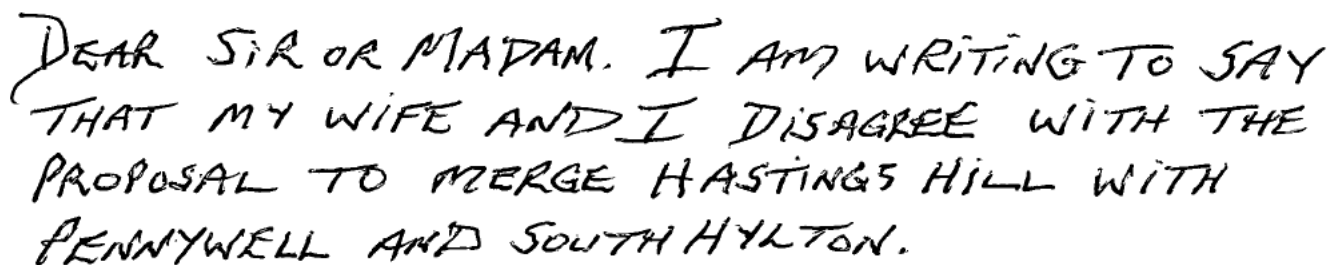 DEAR SiR OR MADAM. I AM WRiTiNG TO SAY
THAT MY WiFE AND I DiSAGREE WiTH THE
PROPOSAL TO MERGE HASTiNGS HiLL WiTH
PENNYWELL AND SOUTH HYLTON.